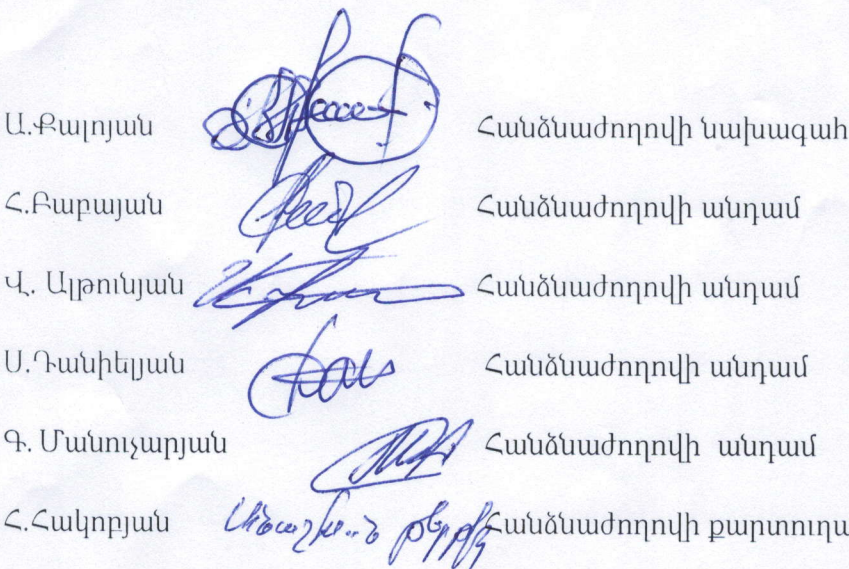 Ա.Քալոյան Հանձնաժողովի նախագահ
Հ.Բաբայան Հանձնաժողովի անդամ
Վ. Ալթունյան Հանձնաժողովի անդամ
Ս.Դանիելյան Հանձնաժողովի անդամ
Գ. Մանուչարյան Հանձնաժողովի անդամ
Հ.Հակոբյան Հանձնաժողովի քարտուղա